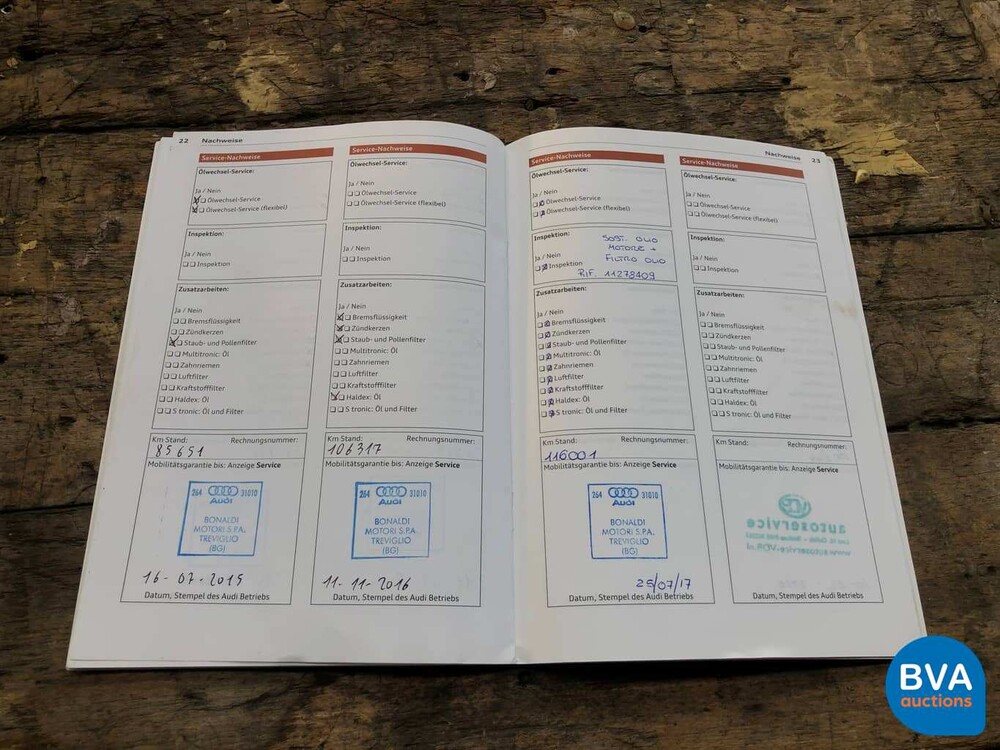 22 Nachweise
Service-Nachweise
Ölwechsel-Service:
Ja / Nein
Ölwechsel-Service
Ölwechsel-Service (flexibel)
Inspektion:
Ja / Nein
Inspektion
Zusatzarbeiten:
Ja / Nein
Bremsflüssigkeit
Zündkerzen
Staub- und Pollenfilter
Multitronic: Öl
Zahnriemen
Luftfilter
Kraftstofffilter
Haldex: Öl
S tronic: Öl und Filter
Km Stand: Rechnungsnummer:
85651
Mobilitätsgarantie bis: Anzeige Service
264 31010
Audi
BONALDI
MOTORI S.P.A.
TREVIGLIO
(BG)
16-07-2015
Datum, Stempel des Audi Betriebs
Service-Nachweise
Ölwechsel-Service:
Ja / Nein
Ölwechsel-Service
Ölwechsel-Service (flexibel)
Inspektion:
Ja / Nein
Inspektion
Zusatzarbeiten:
Ja / Nein
Bremsflüssigkeit
Zündkerzen
Staub- und Pollenfilter
Multitronic: Öl
Zahnriemen
Luftfilter
Kraftstofffilter
Haldex: Öl
S tronic: Öl und Filter
Km Stand: Rechnungsnummer:
106317
Mobilitätsgarantie bis: Anzeige Service
264 31010
Audi
BONALDI
MOTORI S.P.A.
TREVIGLIO
(BG)
11-11-2016
Datum, Stempel des Audi Betriebs
Nachweise 23
Service-Nachweise
Ölwechsel-Service:
Ja / Nein
Ölwechsel-Service
Ölwechsel-Service (flexibel)
Inspektion:
SOST. OLIO
MOTORE +
FILTRO OLIO
RIF. 11278409
Ja / Nein
Inspektion
Zusatzarbeiten:
Ja / Nein
Bremsflüssigkeit
Zündkerzen
Staub- und Pollenfilter
Multitronic: Öl
Zahnriemen
Luftfilter
Kraftstofffilter
Haldex: Öl
S tronic: Öl und Filter
Km Stand: Rechnungsnummer:
116001
Mobilitätsgarantie bis: Anzeige Service
264 31010
Audi
BONALDI
MOTORI S.P.A.
TREVIGLIO
(BG)
25/07/17
Datum, Stempel des Audi Betriebs
Service-Nachweise
Ölwechsel-Service:
Ja / Nein
Ölwechsel-Service
Ölwechsel-Service (flexibel)
Inspektion:
Ja / Nein
Inspektion
Zusatzarbeiten:
Ja / Nein
Bremsflüssigkeit
Zündkerzen
Staub- und Pollenfilter
Multitronic: Öl
Zahnriemen
Luftfilter
Kraftstofffilter
Haldex: Öl
S tronic: Öl und Filter
Km Stand: Rechnungsnummer:
Mobilitätsgarantie bis: Anzeige Service
autoservice
Datum, Stempel des Audi Betriebs
BVA
auctions